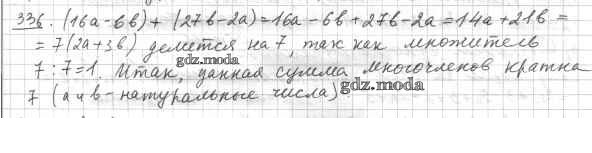 336. (16a-6b)+(27b-2a)=16a-6b+27b-2a=14a+21b=
=7(2a+3b) делется на 7, так как множитель
gdz.moda
7:7=1. Итак, данная сумма многочленов кратна
7 (a и b - натуральные числа)
gdz.moda